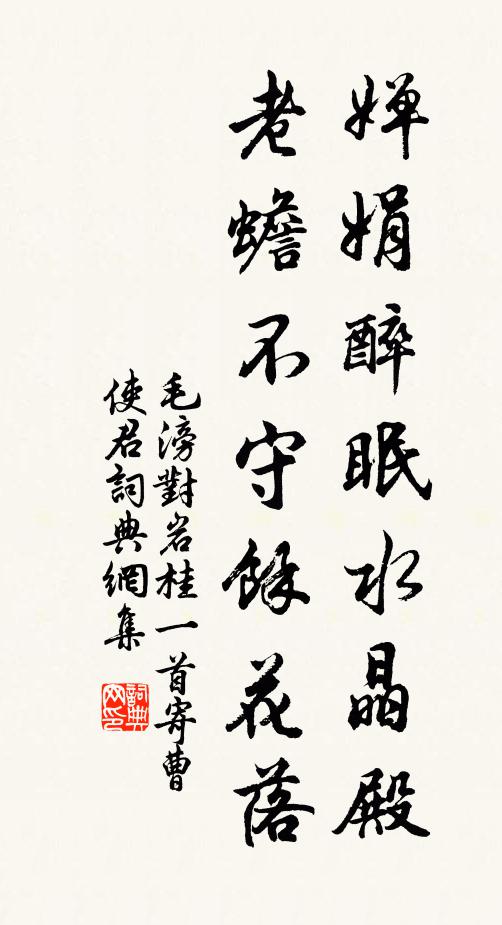 婵娟醉眠水晶殿
老蟾不守餘花落
毛滂對岩桂一首寄曹
使君詞典網集
詞典
网印